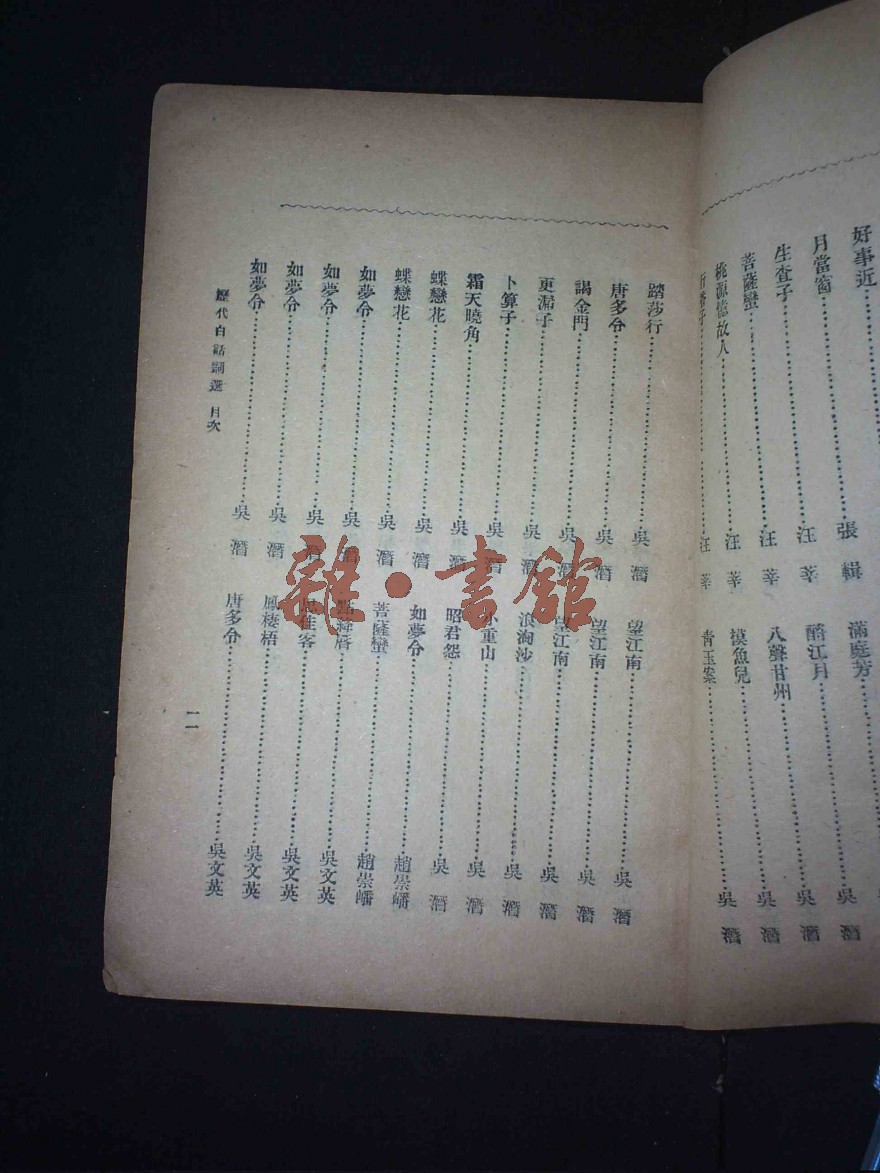 好事近……張輯
月當窗……汪莘
生查子……汪莘
菩薩蠻……汪莘
桃源憶故人……汪莘
滿庭芳……吳潛
酹江月……吳潛
八聲甘州……吳潛
摸魚兒……吳潛
青玉案……
踏莎行……吳潛
唐多令……吳潛
謁金門……吳潛
更漏子……吳潛
卜算子……吳潛
霜天曉角……吳潛
蝶戀花……吳潛
蝶戀花……吳潛
如夢令……吳潛
如夢令……吳潛
如夢令……吳潛
如夢令……吳潛
望江南……吳潛
望江南……吳潛
望江南……吳潛
浪淘沙……吳潛
小重山……吳潛
昭君怨……吳潛
如夢令……趙崇嶓
菩薩蠻……趙崇嶓
點絳脣……吳文英
思佳客……吳文英
鳳棲梧……吳文英
唐多令……吳文英
歷代白話詞選 目次
一一
雜·書館